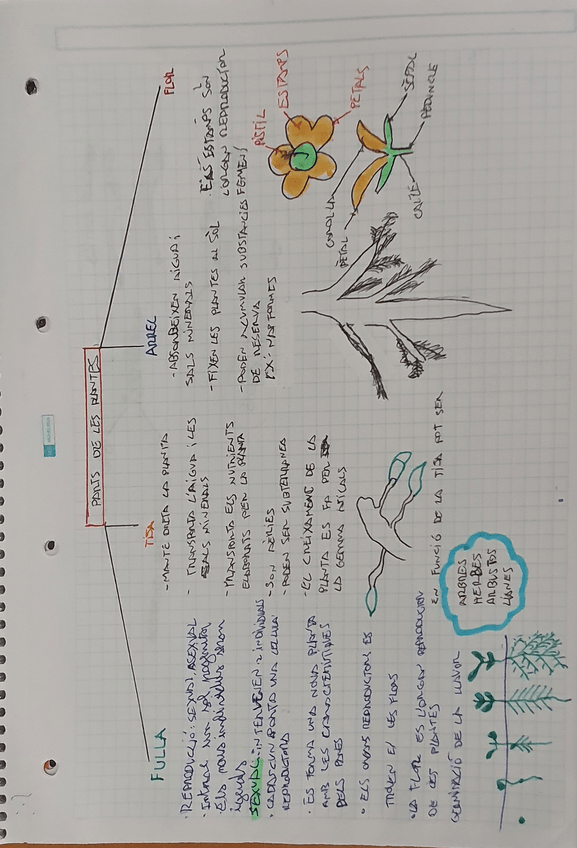 PARTS DE LES PLANTES
FULLA
TIJA
ARREL
FLOR
· REPRODUCCIÓ: SEXUAL I ASEXUAL
· Els nous individus són
iguals
SEXUAL: INTERVENEN 2 INDIVIDUS
· CADASCUN APORTA UNA CÈL·LULA
REPRODUCTORA
· ES FORMA UNA NOVA PLANTA
AMB LES CARACTERÍSTIQUES
DELS PARES
· ELS ORGANS REPRODUCTORS ES
TROVEN EN LES FLORS
· LA FLOR ES L'ORGAN REPRODUCTOR
DE LES PLANTES
GERMINACIÓ DE LA LLAVOR
- MANTÉ DRETA LA PLANTA
- TRANSPORTA L'AIGUA I LES
SALS MINERALS
- TRANSPORTA ELS NUTRIENTS
ELABORATS PER LA PLANTA
- SON AÈRIES
- PODEN SER SUBTERRANEA
- EL CREIXAMENT DE LA
PLANTA ES FA PER
LA GEMMA APICALS
EN FUNCIÓ DE LA TIJA POT SER
ARBRES
HERBES
ARBUSTOS
LIANES
- ABSORBEIXEN L'AIGUA I
SALS MINERALS
- FIXEN LES PLANTES AL SÒL
- PODEN ACUMULAR SUBSTANCIES
DE RESERVA
· ELS ESTAMS SÓN
L'ORGAN REPRODUCTOR
FEMENÍ
PISTIL
ESTAMS
PETALS
COROL·LA
PÈTAL
SÈPAL
PEDUNCLE
CALZE